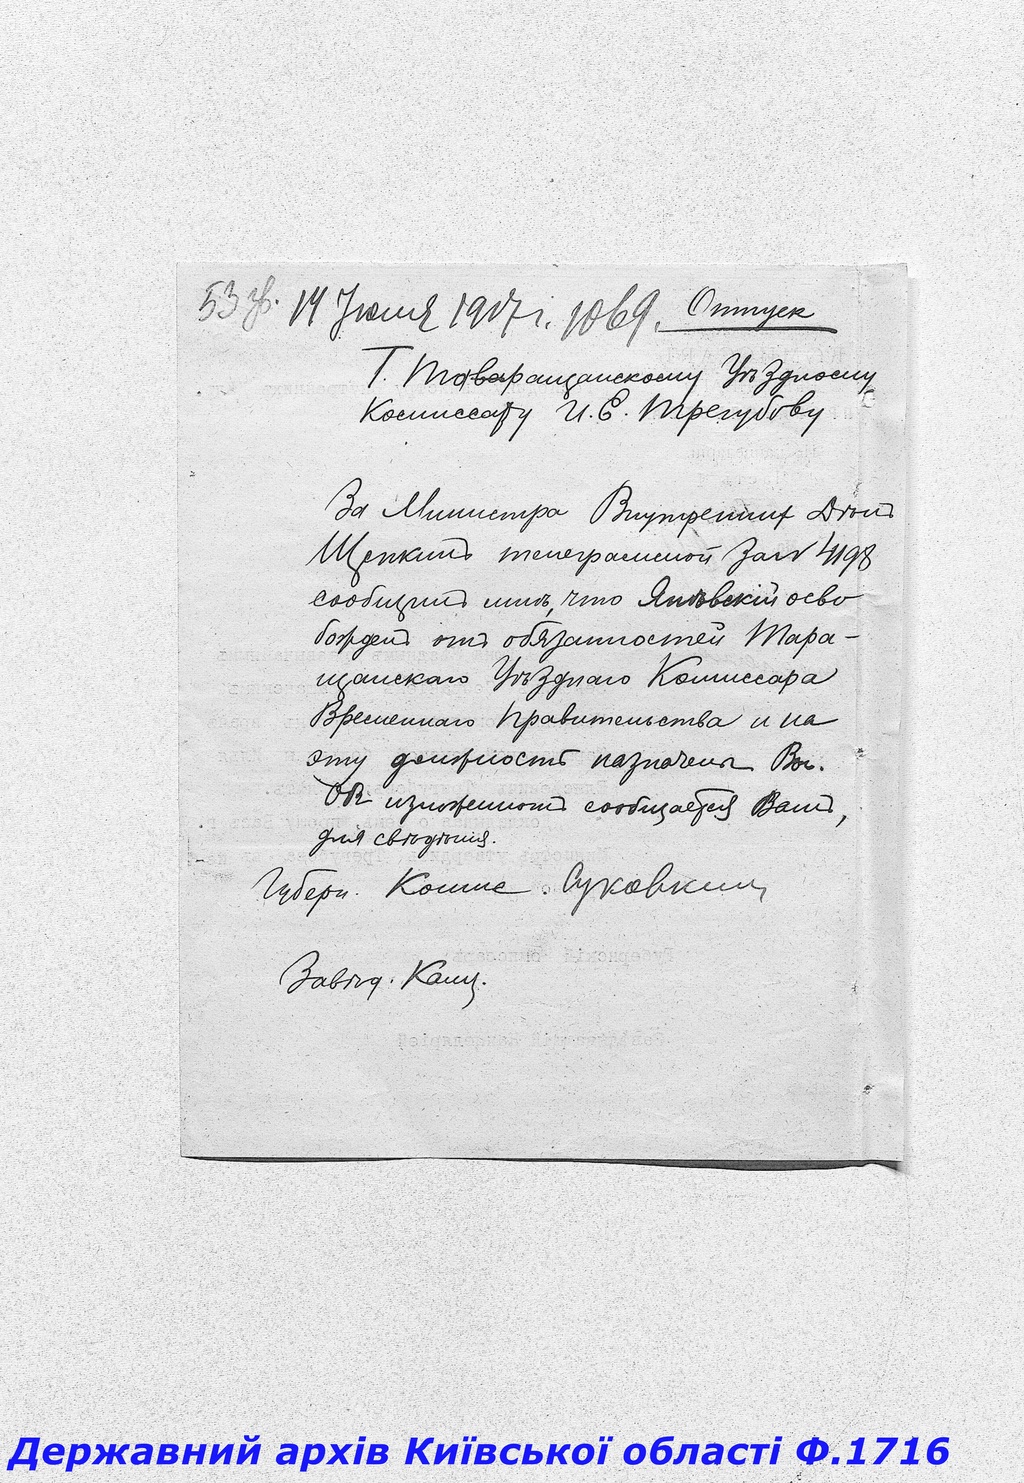 53 14 Июля 1917 г. 1069. Отпуск
Г. Таращанскому Уѣздному
Комиссару И. Е. Трегубову
За Министра Внутренних Дѣлъ
Щепкинъ телеграммой за № 4198
сообщилъ мнѣ, что Яновскій осво
божденъ отъ обязанностей Тара-
щанскаго Уѣзднаго Комиссара
Временнаго Правительства и на
эту должность назначены Вы.
Об изложенномъ сообщается Вамъ,
для свѣдѣнія.
Губерн. Комис. Суковкин
Завѣд. Канц.
Державний архів Київської області Ф.1716